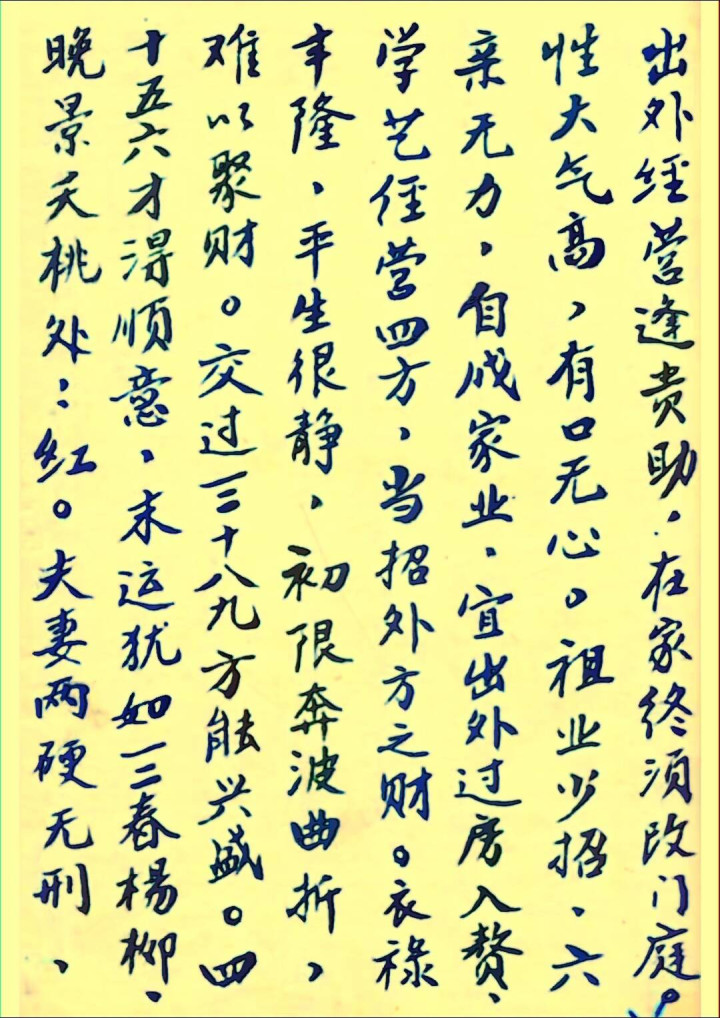 出外经营逢贵助，在家终须改门庭。
性大气高，有口无心。祖业少招、六
亲无力，自成家业、宜出外过房入赘、
学艺经营四方，当招外方之财。衣禄
丰隆，平生很静，初限奔波曲折，
难以聚财。交过三十八九方能兴盛。四
十五六才得顺意，末运犹如三春杨柳、
晚景夭桃处：红。夫妻两硬无刑、